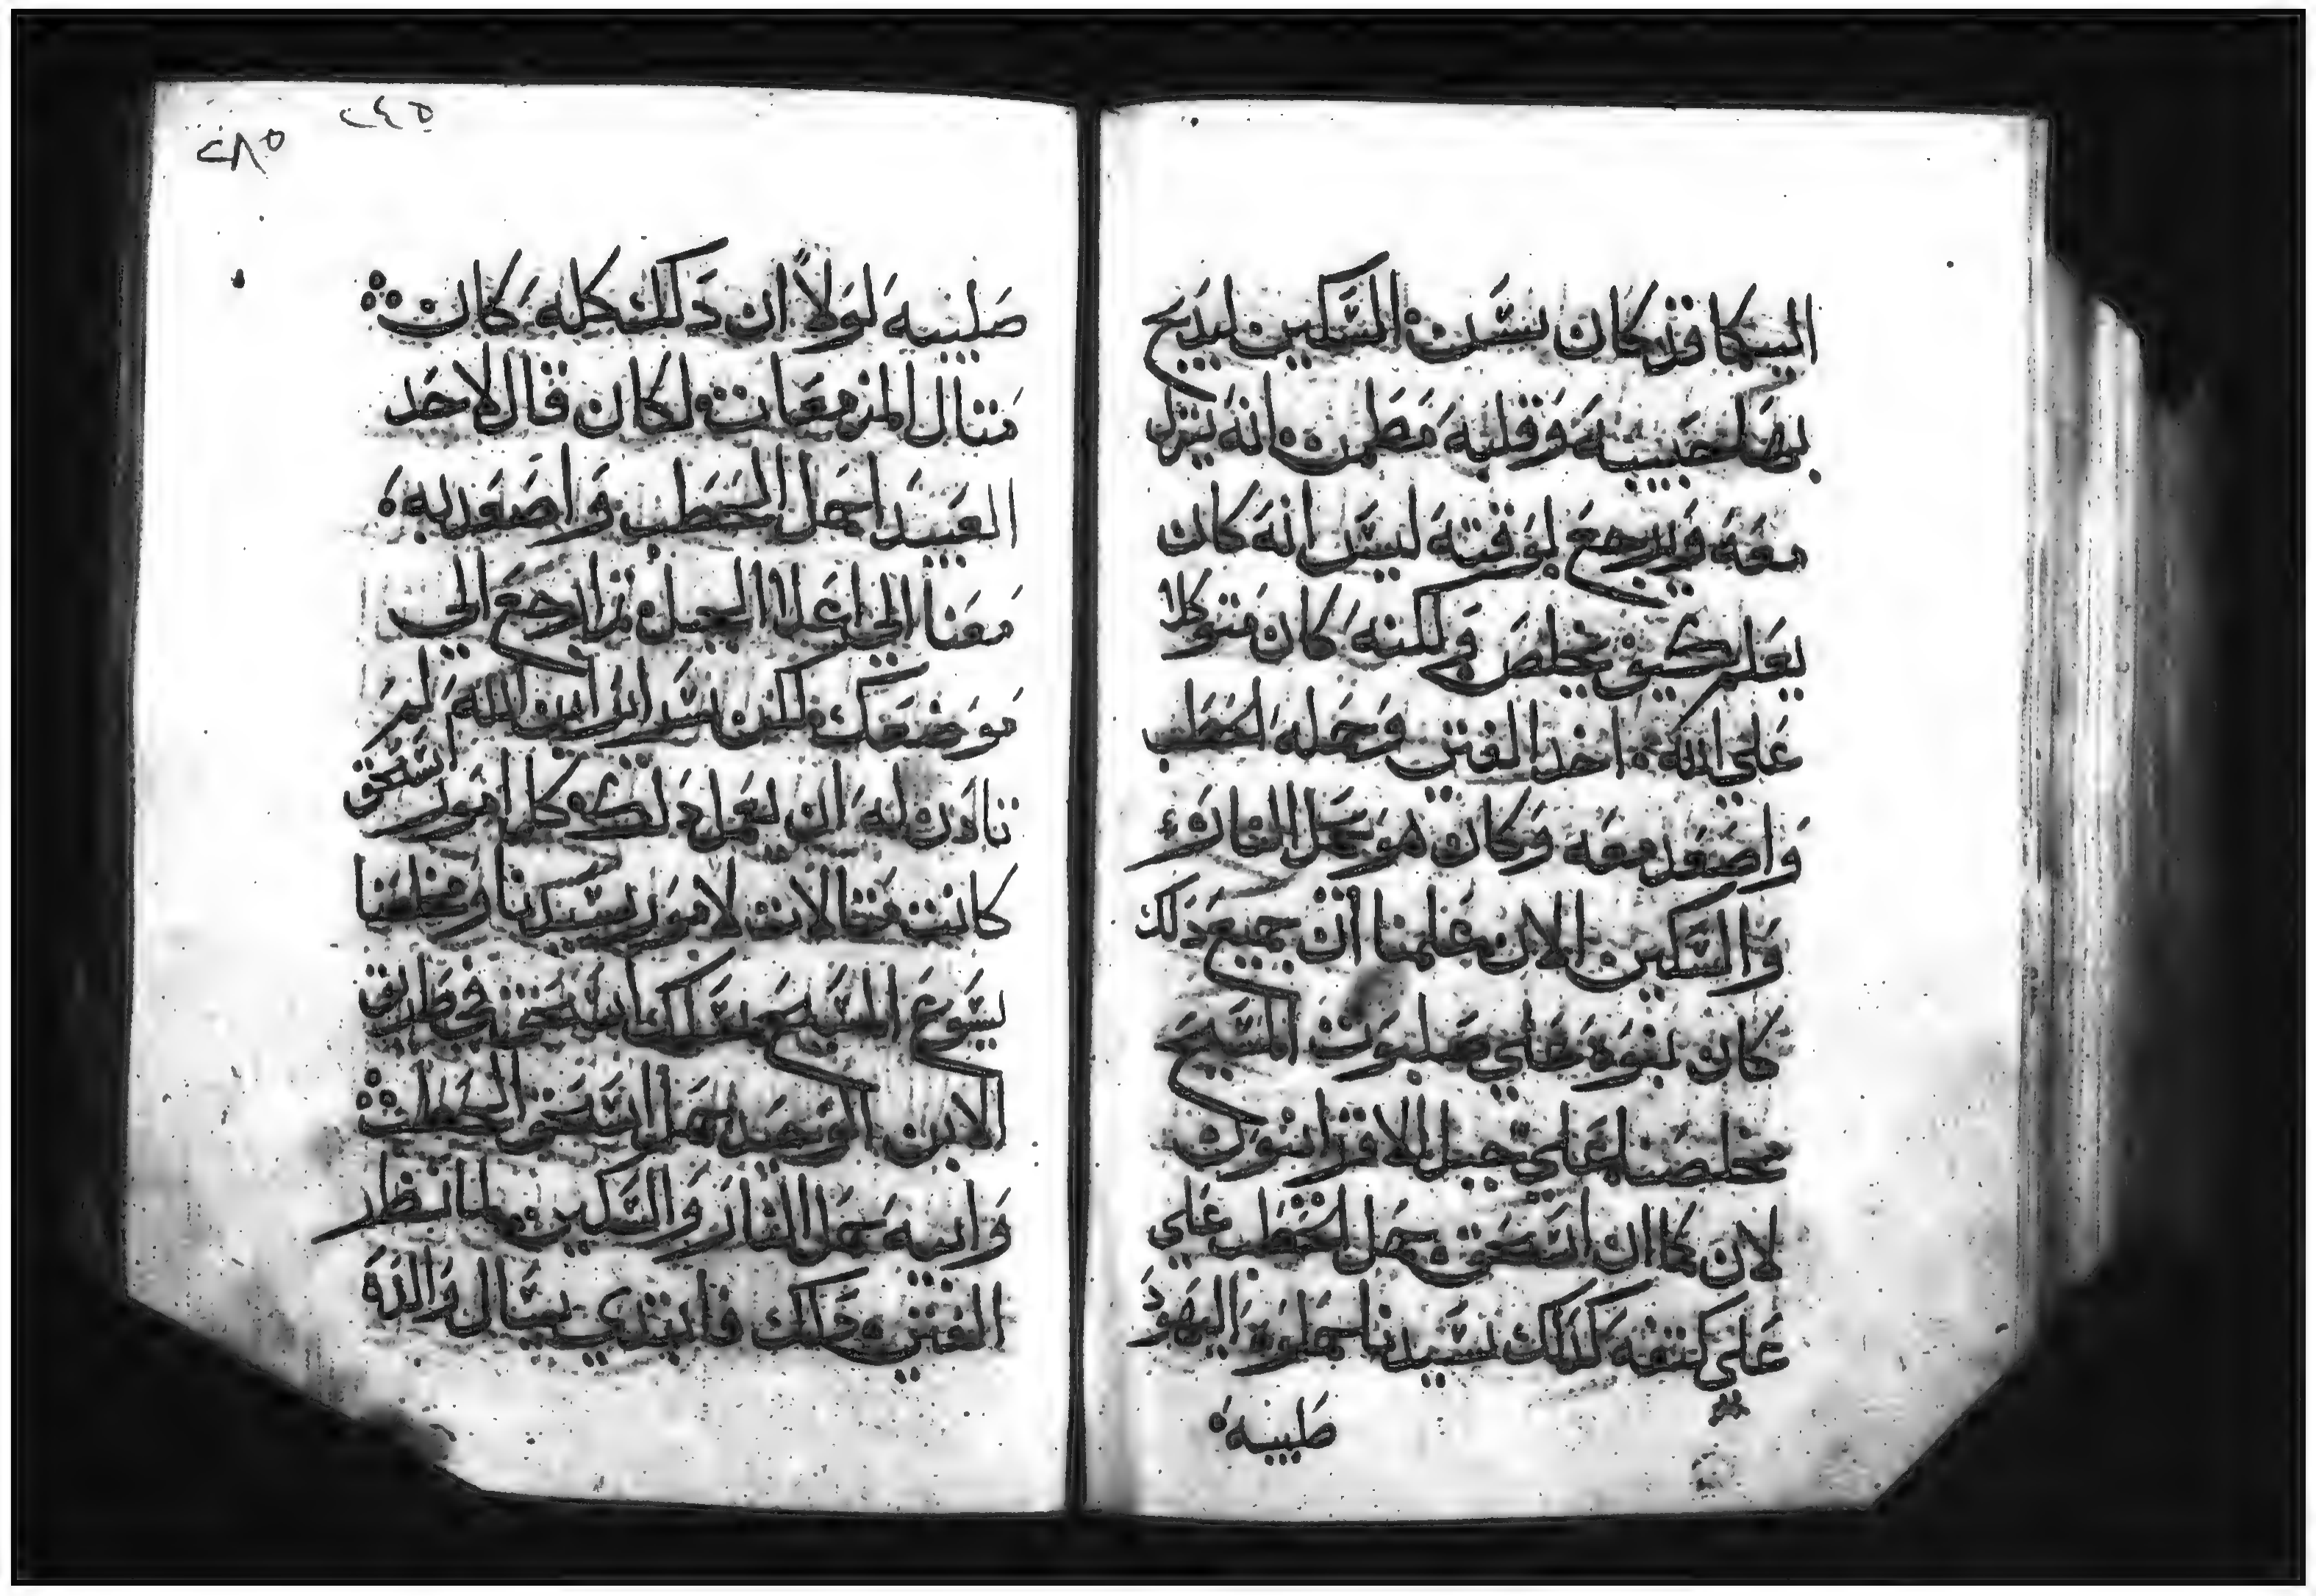 البكا وزكان يشن السكين ليذبح
بها لحبيبه وقلبه مطمن انه ينزل
معه ويرجع لوقته ليس انه كان
يعلم كيف يخلص ولكنه كان متوكلا
على الله اخذ الفتى وحمله الحطب
واصعد معه وكان هو يحمل النار
والسكين الان علمنا ان جميع ذلك
كان بنوه على صلبوت المسيح
مخلصنا على جبل الاقرانيون
لان كما ان اسحق حمل الحطب على
على كتفه كذلك سيدنا حملوه اليهود
صليبه
٢٤٥
٢٨٥
صليبه لولا ان ذلك كله كان
مثال المزمعات لكان قال لاحد
العبيد احمل الحطب واصعد به
معنا الى اعلا الجبل ثم ارجع الى
موضعك لكن سرائر ابن الله لم
تاذن له ان يعمل ذلك كل امور اسحق
كانت مثالات لامور سيدنا ومخلصنا
يسوع المسيح سلك اسحق في طريق
الابن الوحيد حمل اسحق الحطب
وابيه حمل النار والسكين فلما نظر
الفتى ذلك فابتدى يسال والده